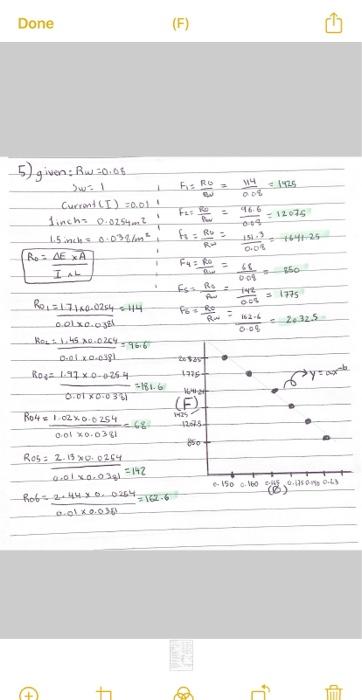 Done (F)
5) given: Rw=0.08
Sw= 1
Current (I) = 0.01
1inch= 0.0254m2
1.5 inch = 0.0381m²
Ro = ΔE x A / I x L
Ro1 = 1.71x0.0254 / 0.01x0.0381 = 114
Ro2 = 1.45 x0.0254 / 0.01 x0.0381 = 96.6
Ro3 = 1.97 x 0.0254 / 0.01x0.0381 = 131.6
Ro4 = 1.02x0.0254 / 0.01 x0.0381 = 68
Ro5 = 2.13x0.0254 / 0.01x0.0381 = 142
Ro6 = 2.44x0.0254 / 0.01x0.0381 = 162.6
F1 = Ro / Rw = 114 / 0.08 = 1425
F2 = Ro / Rw = 96.6 / 0.08 = 12075
F3 = Ro / Rw = 131.3 / 0.08 = 1641.25
F4 = Ro / Rw = 68 / 0.08 = 850
F5 = Ro / Rw = 142 / 0.08 = 1775
F6 = Ro / Rw = 162.6 / 0.08 = 2032.5
1775
(F)
1425
850
y=ax^-b
0.150 0.160
(Ø)